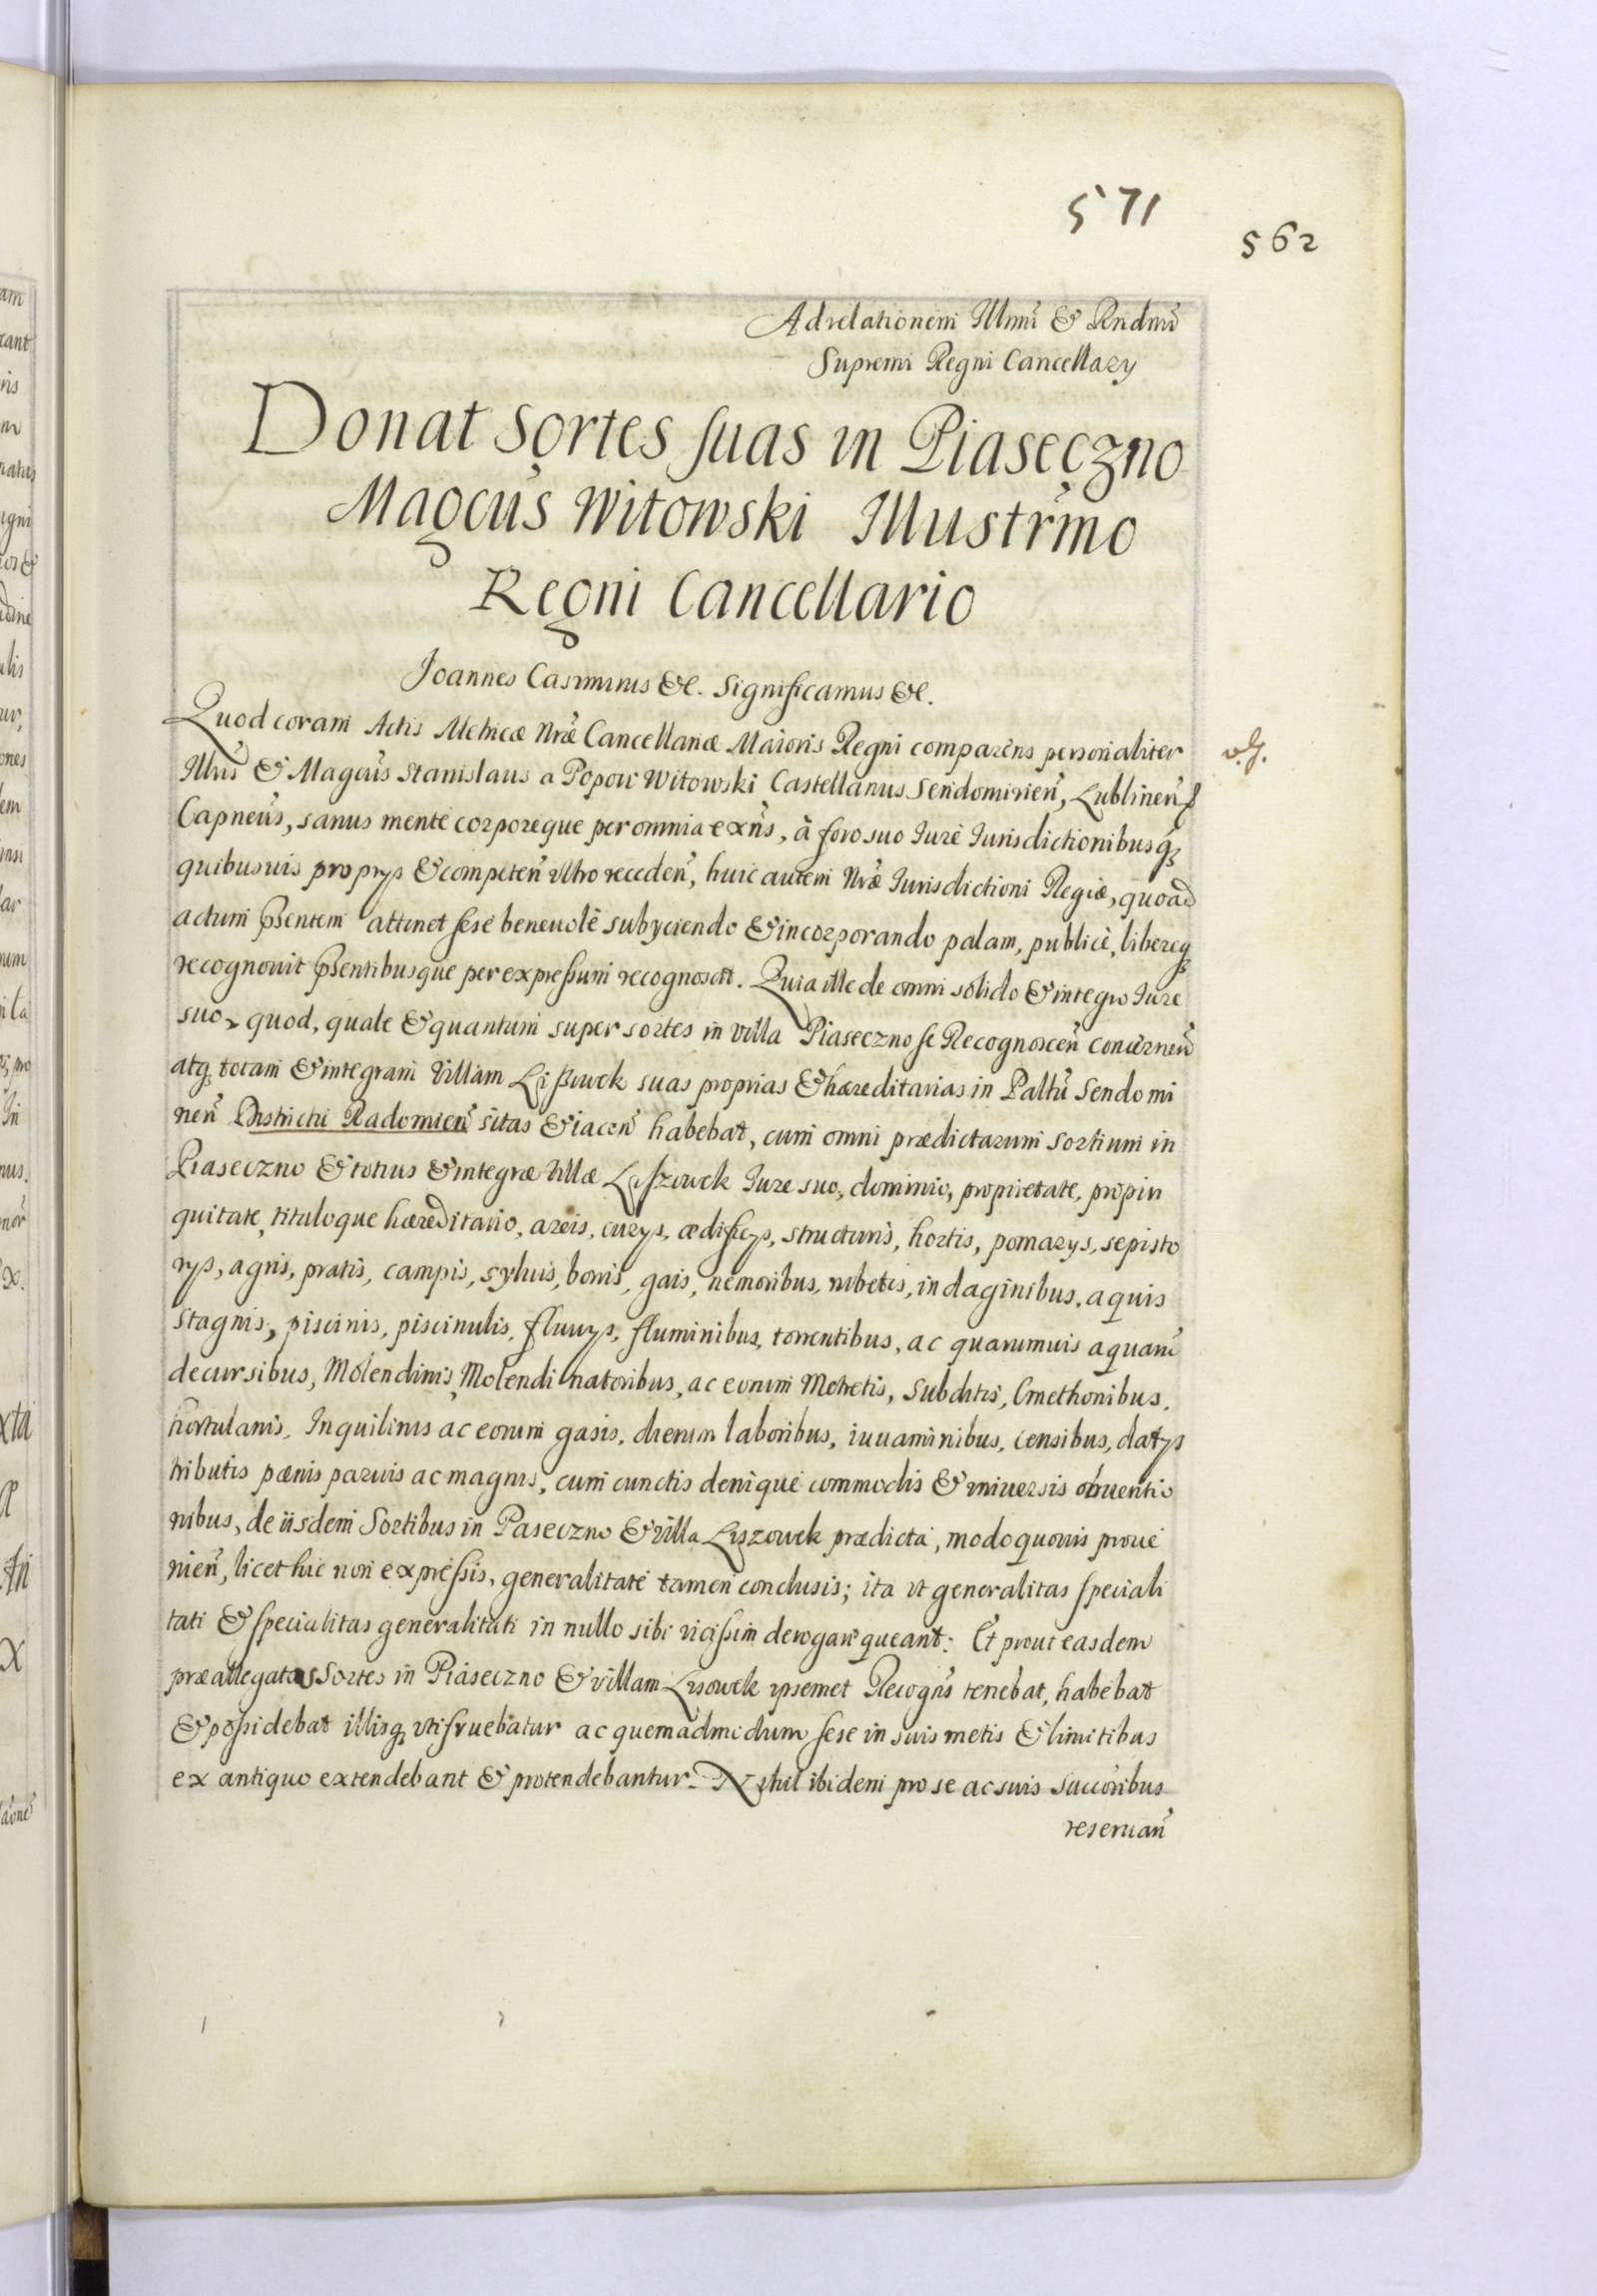 571
562
Ad relationem Illmi & Rndmi
Supremi Regni Cancellarÿ
Donat sortes suas in Piaseczno
Magcus Witowski Illustrmo
Regni Cancellario
Joannes Casimirus &c. Significamus &c.
Quod coram Actis Metricæ Nræ Cancellariæ Maioris Regni comparens personaliter
Illris & Magcus Stanislaus a Popow Witowski Castellanus Sendomirien, Lublinen
Capneus, sanus mente corporeque per omnia exns, à foro suo Jure Jurisdictionibusq
quibusuis proprÿs & competen vltro receden, huic autem Nræ Jurisdictioni Regiæ, quoad
actum pSentem attinet sese beneuole subÿciendo & incorporando palam, publicè, libereq
recognouit pSentibusque per expressum recognoscit. Quia ille de omni solido & integro Jure
suo, quod, quale & quantum super sortes in villa Piaseczno se Recognoscen concernen
atq totam & integram Villam Lißowek suas proprias & hæreditarias in Paltu Sendomi
rien Districtu Radomien sitas & iacen habebat, cum omni prædictarum sortium in
Piaseczno & totius & integræ Villæ Liszowek Jure suo, dominio, proprietate, propin
quitate, tituloque hæreditario, areis, curÿs, ædificÿs, structuris, hortis, pomarÿs, sepisto
rÿs, agris, pratis, campis, syluis, borris, gais, nemoribus, rubetis, indaginibus, aquis
stagnis, piscinis, piscinulis, fluuÿs, fluminibus, torrentibus, ac quarumuis aquarum
decursibus, Molendinis, Molendinatoribus, ac eorum Metretis, Subditis, Cmethonibus,
hortulanis, Inquilinis ac eorum gasis, dierum laboribus, iuuaminibus, censibus, datÿs
tributis pænis paruis ac magnis, cum cunctis denique commodis & vniuersis obuentio
nibus, de iisdem Sortibus in Paseczno & villa Liszowek prædicta, modoquouis proue
nien, licet hic non expressis, generalitate tamen conclusis; ita vt generalitas speciali
tati & specialitas generalitati in nullo sibi vicissim derogare queant: Et prout easdem
præallegatas Sortes in Piaseczno & villam Lisowek ipsemet Recogns tenebat, habebat
& possidebat illisq vtifruebatur ac quemadmodum sese in suis metis & limitibus
ex antiquo extendebant & protendebantur. Nihil ibidem pro se ac suis succoribus
reseruan